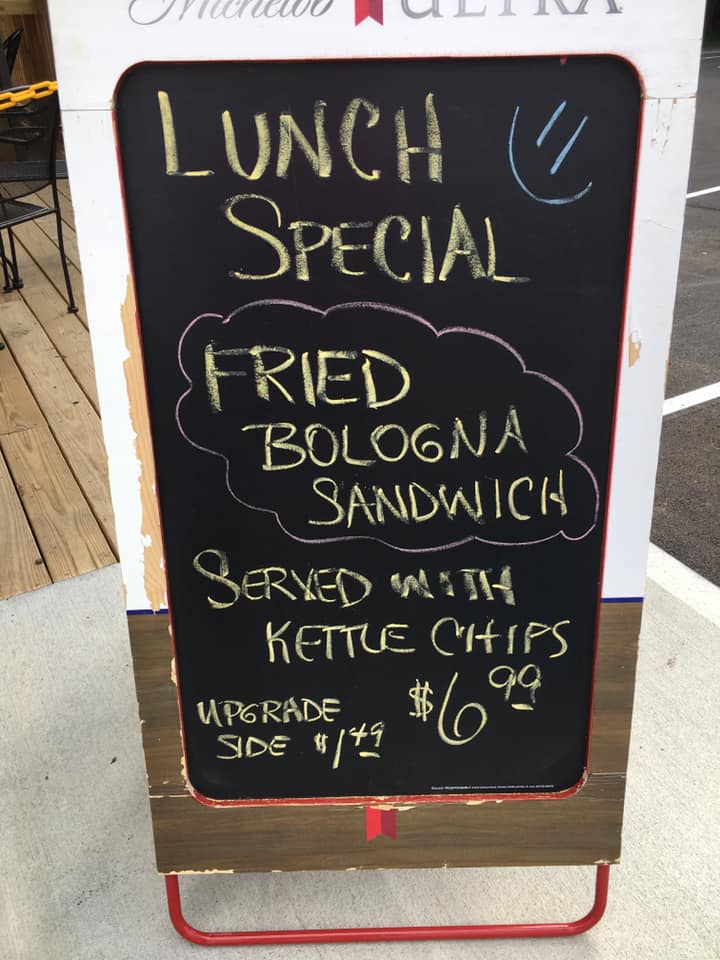 Michelob ULTRA
LUNCH
SPECIAL
FRIED
BOLOGNA
SANDWICH
SERVED WITH
KETTLE CHIPS
$6.99
UPGRADE
SIDE $1.49